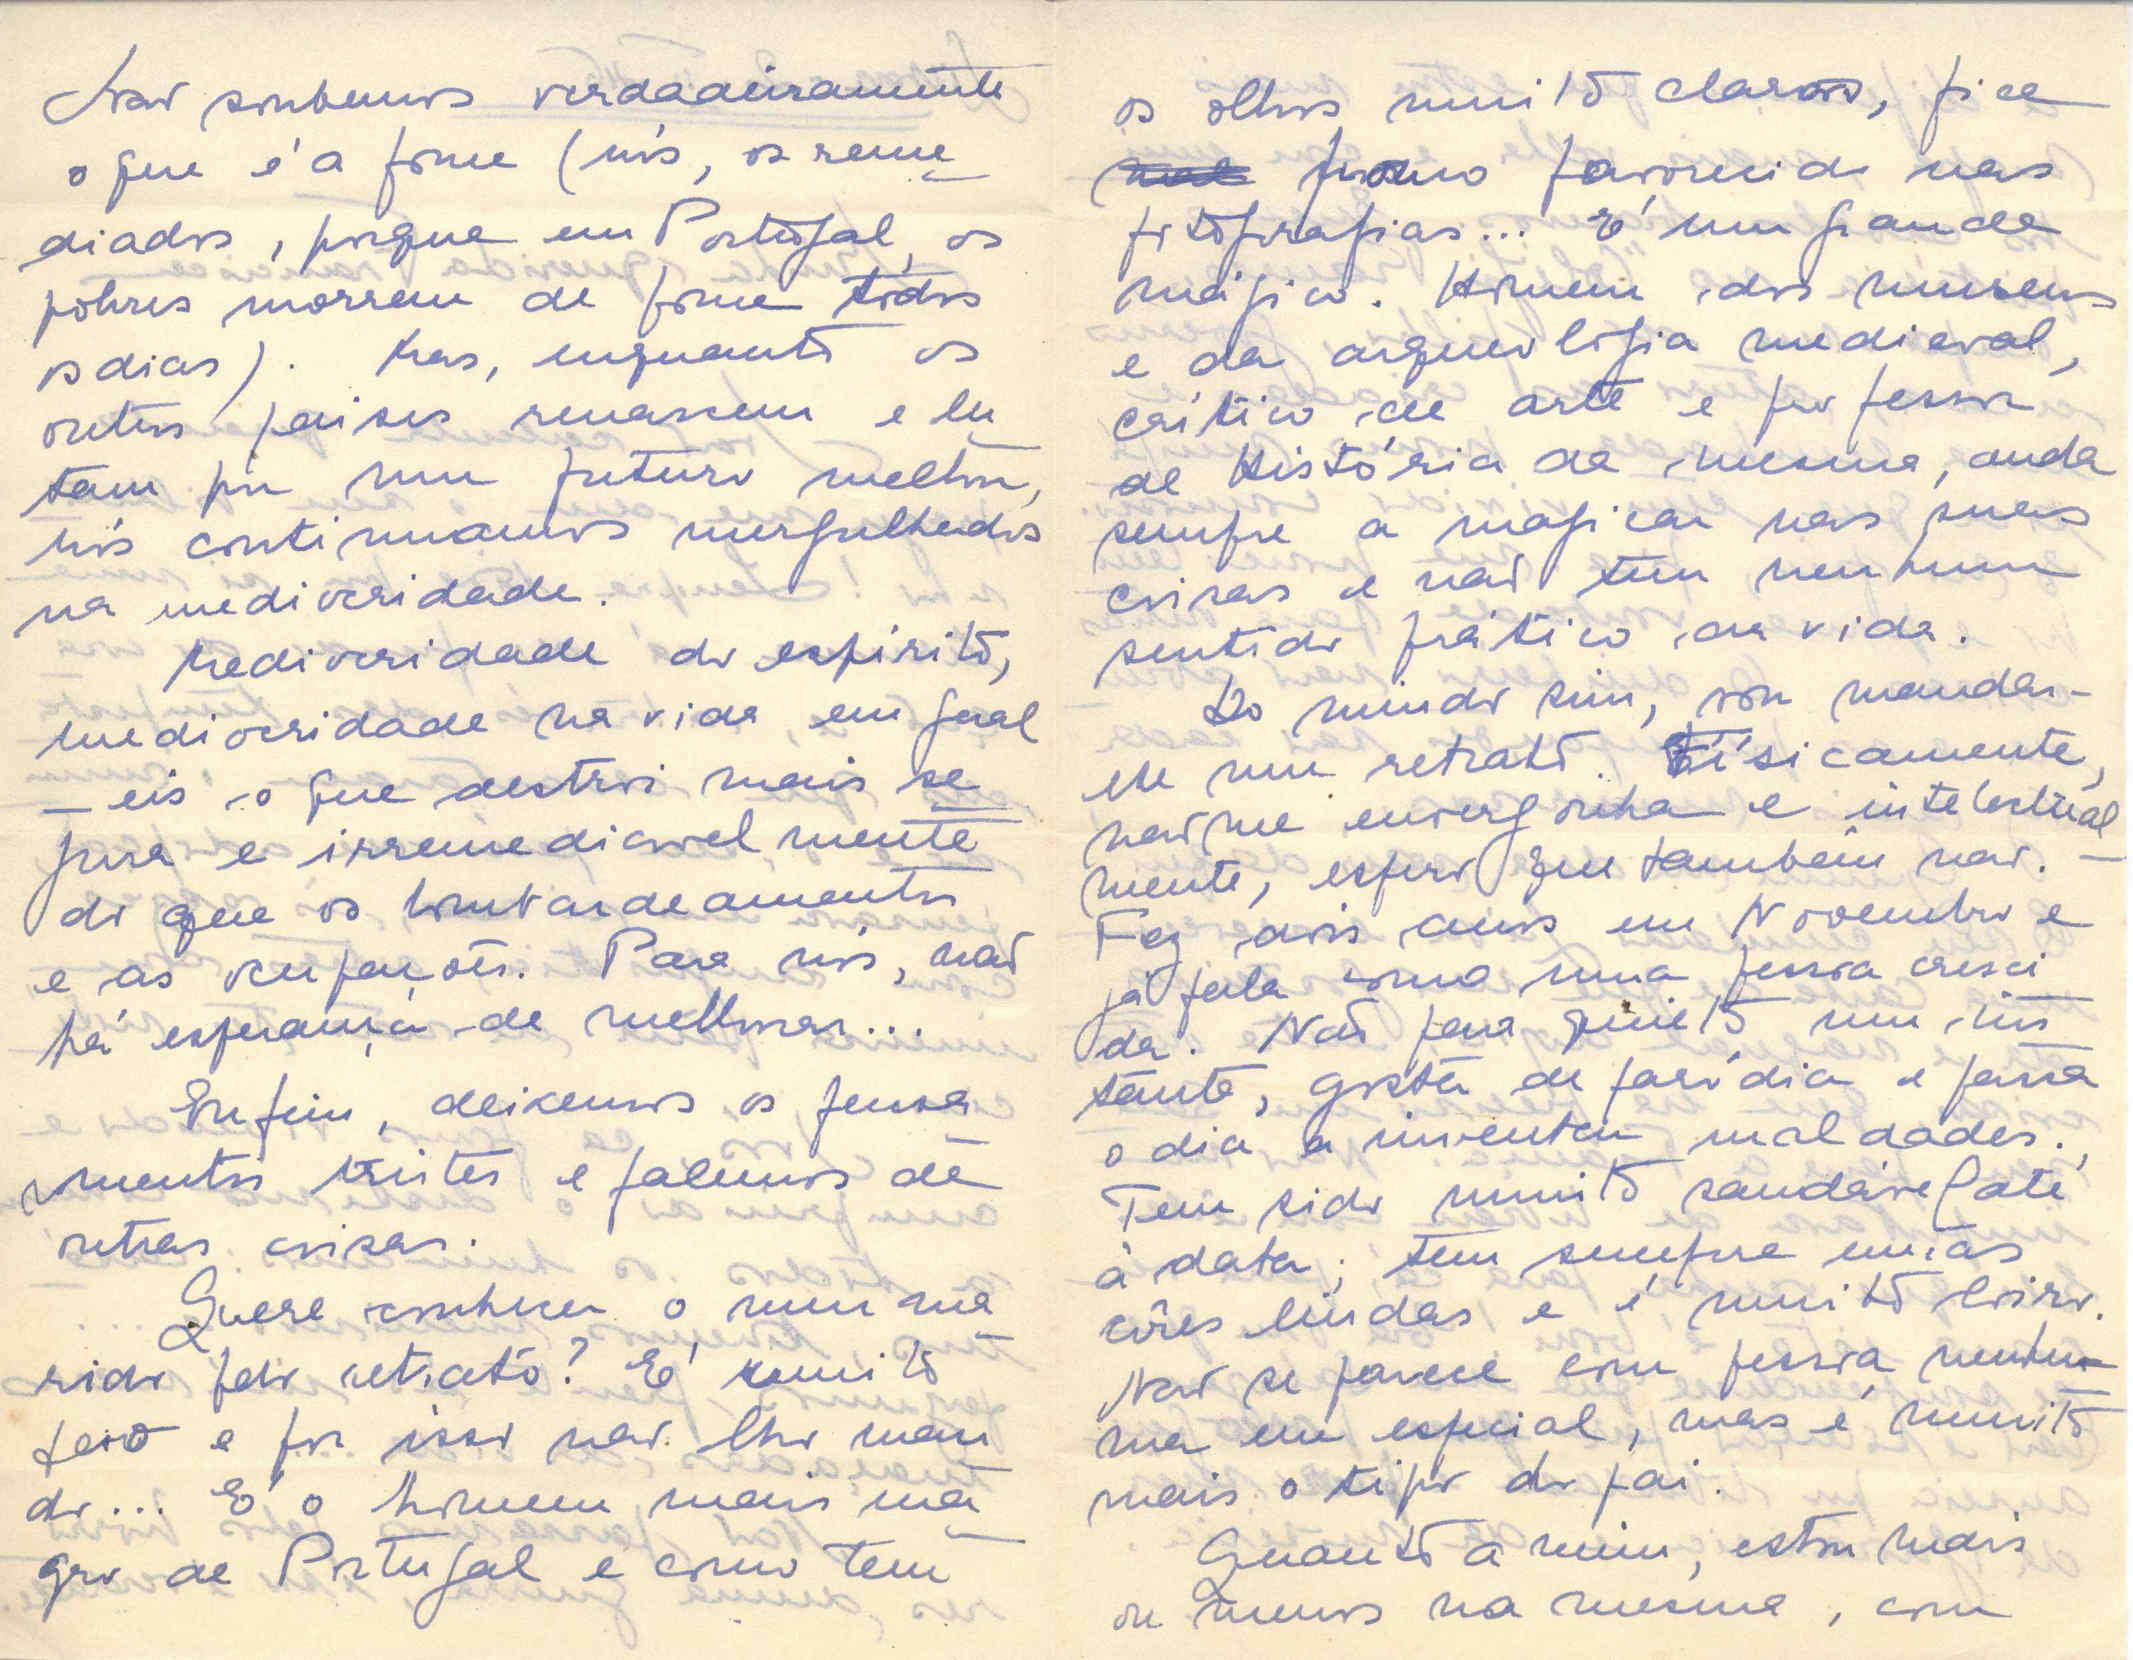 Não soubemos verdadeiramente
o que é a fome (nós, os reme
diados, porque em Portugal, os
pobres morrem de fome todos
os dias). Mas, enquanto os
outros paises renascem e lu
tam por um futuro melhor,
nós continuamos mergulhados
na mediocridade.
Mediocridade do espírito,
mediocridade na vida, em geral
– eis o que destroi mais se
gura e irremediavelmente
do que os bombardeamentos
e as ocupações. Para nós, não
há esperança de melhorar...
Enfim, deixemos os pensa
mentos tristes e falemos de
outras coisas.
Quere conhecer o meu ma
rido pelo retrato? É muito
feio e por isso não lho man
do... É o homem mais ma
gro de Portugal e como tem
os olhos muito claros, fica
pouco favorecido nas
fotografias... É um grande
mágico. Homem dos museus
e da arqueologia medieval,
crítico de arte e professor
de História da mesma, anda
sempre a magicar nas suas
coisas e não tem nenhum
sentido prático da vida.
Do miudo sim, vou mandar-
lhe um retrato. Físicamente,
não me envergonha e intelectual
mente, espero que também não. –
Fez dois anos em Novembro e
já fala como uma pessoa cresci
da. Não para quieto um ins
tante, gosta de paródia e passa
o dia a inventar maldades.
Tem sido muito saudável até
à data; tem sempre umas
côres lindas e é muito loiro.
Não se parece com pessoa nenhu
ma em especial, mas é muito
mais o tipo do pai.
Quanto a mim, estou mais
ou menos na mesma, com